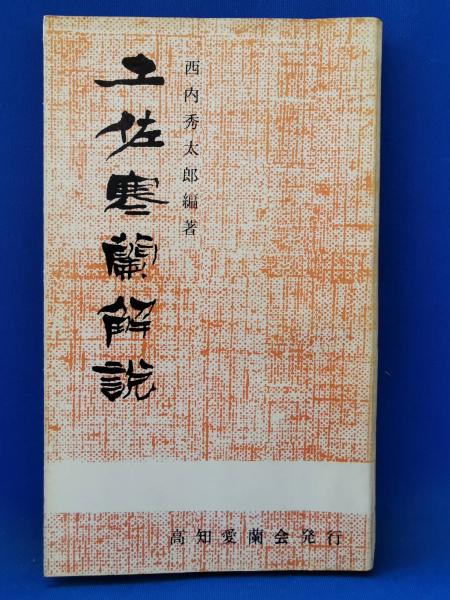 土佐寒蘭解説
西内秀太郎編著
高知愛蘭会発行